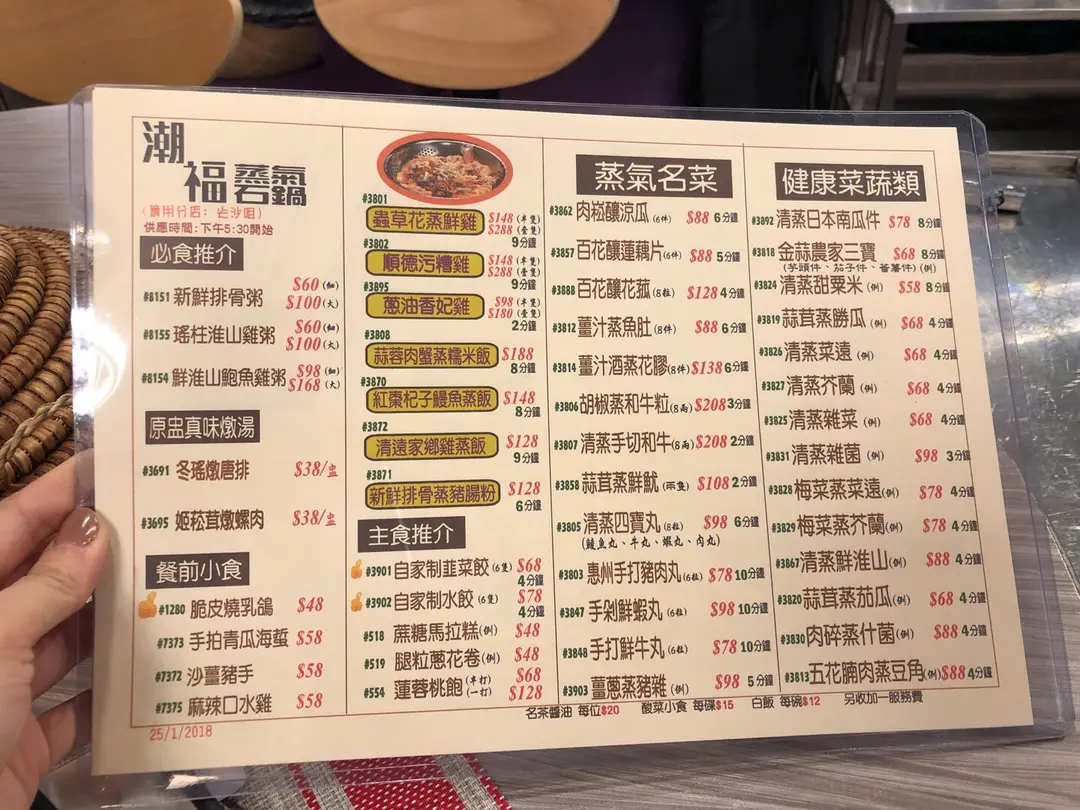 潮福蒸氣石鍋
供應時間:下午5:30開始
必食推介
#8151 新鮮排骨粥 $60(細)
$100(大)
#8155 瑤柱淮山雞粥 $60(細)
$100(大)
#8154 鮮淮山鮑魚雞粥 $98(細)
$168(大)
原盅真味燉湯
#3691 冬瑤燉唐排 $38/盅
#3695 姬松茸燉螺肉 $38/盅
餐前小食
#1280 脆皮燒乳鴿 $48
#7373 手拍青瓜海蜇 $58
#7372 沙薑豬手 $58
#7375 麻辣口水雞 $58
25/1/2018
#3801
蟲草花蒸鮮雞 $148(半隻)
$288(壹隻)
9分鐘
#3802
順德污糟雞 $148(半隻)
$288(壹隻)
9分鐘
#3895
蔥油香妃雞 $98(半隻)
$180(壹隻)
2分鐘
#3808
蒜蓉肉蟹蒸糯米飯 $188
8分鐘
#3870
紅棗杞子鰻魚蒸飯 $148
8分鐘
#3872
清遠家鄉雞蒸飯 $128
9分鐘
#3871
新鮮排骨蒸豬腸粉 $128
6分鐘
主食推介
#3901 自家制韭菜餃(6隻) $68
4分鐘
#3902 自家制水餃(6隻) $78
4分鐘
#518 蔗糖馬拉糕(例) $48
#519 腿粒蔥花卷(例) $48
#554 蓮蓉桃飽(半打) $68
(一打) $128
蒸氣名菜
#3862 肉崧釀涼瓜(6件) $88 6分鐘
#3857 百花釀蓮藕片(6件) $88 5分鐘
#3888 百花釀花菰(8粒) $128 4分鐘
#3812 薑汁蒸魚肚(8件) $88 6分鐘
#3814 薑汁酒蒸花膠(8件) $138 6分鐘
#3806 胡椒蒸和牛粒(8兩) $208 3分鐘
#3807 清蒸手切和牛(8兩) $208 2分鐘
#3858 蒜茸蒸鮮魷(兩隻) $108 2分鐘
#3805 清蒸四寶丸(8粒) $98 6分鐘
(鯪魚丸、牛丸、蝦丸、肉丸)
#3803 惠州手打豬肉丸(6粒) $78 10分鐘
#3847 手剁鮮蝦丸(6粒) $98 10分鐘
#3848 手打鮮牛丸(6粒) $78 10分鐘
#3903 薑蔥蒸豬雜(例) $98 5分鐘
健康菜蔬類
#3892 清蒸日本南瓜件 $78 8分鐘
#3818 金蒜農家三寶 $68 8分鐘
(芋頭件、茄子件、蕃薯件)(例)
#3824 清蒸甜粟米(例) $58 8分鐘
#3819 蒜茸蒸勝瓜(例) $68 4分鐘
#3826 清蒸菜遠(例) $68 4分鐘
#3827 清蒸芥蘭(例) $68 4分鐘
#3825 清蒸雜菜(例) $68 4分鐘
#3831 清蒸雜菌(例) $98 3分鐘
#3828 梅菜蒸菜遠(例) $78 4分鐘
#3829 梅菜蒸芥蘭(例) $78 4分鐘
#3867 清蒸鮮淮山(例) $88 4分鐘
#3820 蒜茸蒸茄瓜(例) $68 4分鐘
#3830 肉碎蒸什菌(例) $88 4分鐘
#3813 五花腩肉蒸豆角(例) $88 4分鐘
名茶醬油 每位$20 酸菜小食 每碟$15 白飯 每碗$12 另收加一服務費